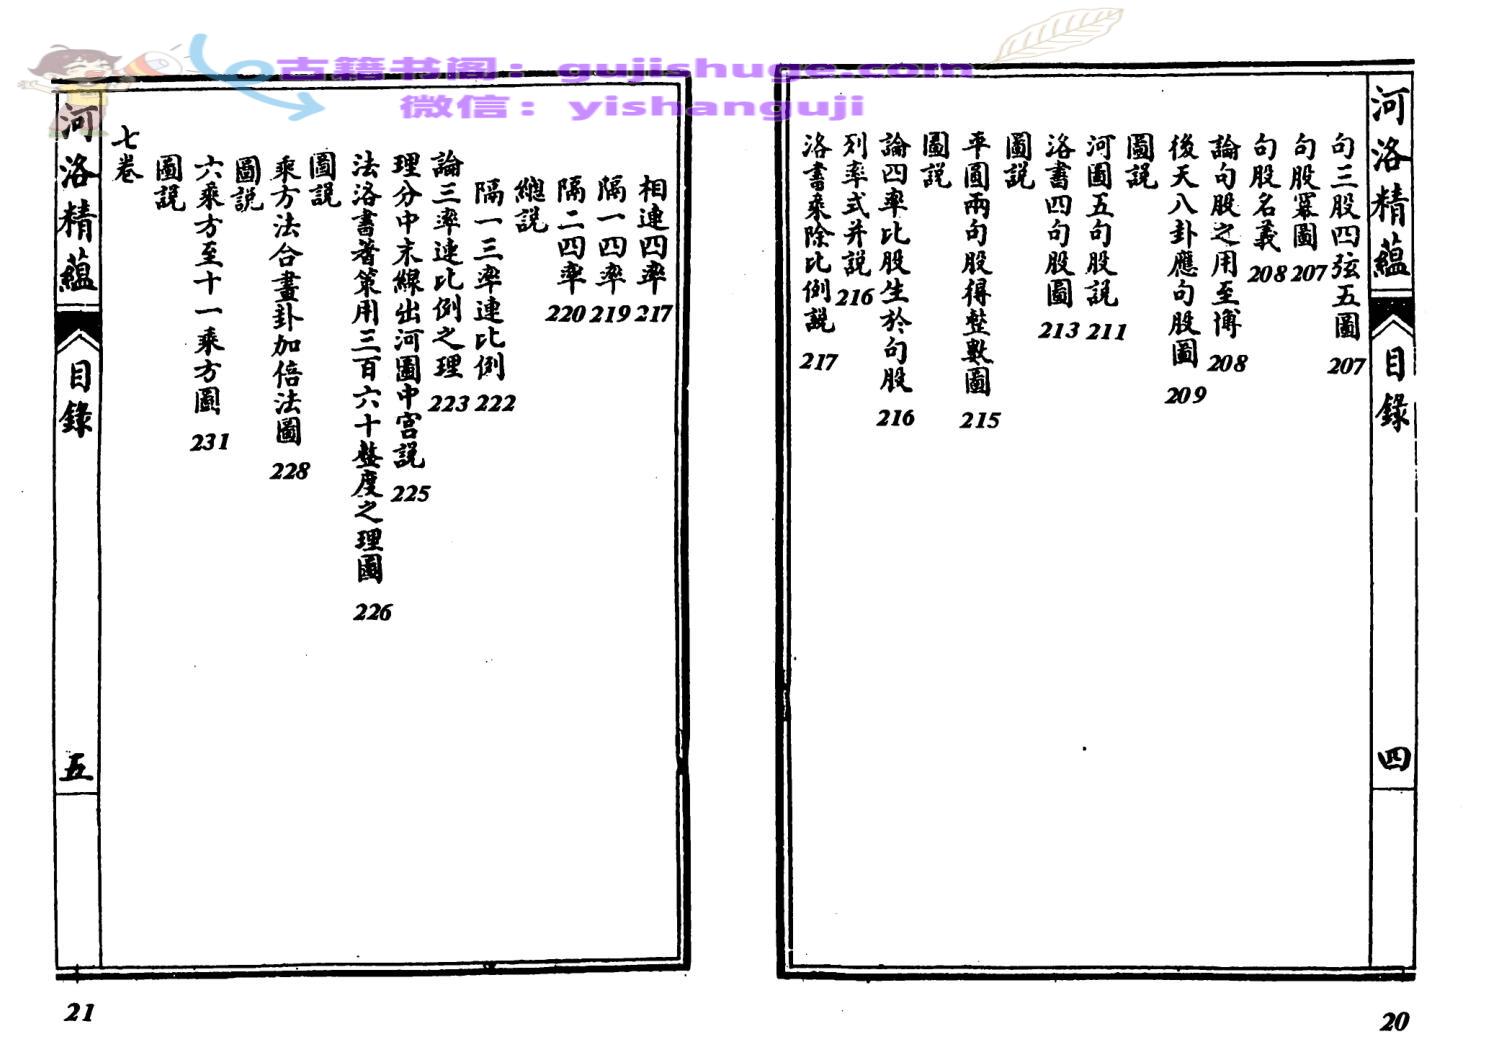 古籍书阁：gujishuge.com
微信：yishanguji
河洛精蘊
目錄
四
句三股四弦五圖 207
句股冪圖 207
句股名義 208
論句股之用至博 208
後天八卦應句股圖 209
圖説
河圖五句股説 211
洛書四句股圖 213
圖説
平圓兩句股得整數圖 215
圖説
論四率比股生於句股 216
列率式并説 216
洛書乘除比例説 217
20
相連四率 217
隔一四率 219
隔二四率 220
總説
隔一三率連比例 222
論三率連比例之理 223
理分中末線出河圖中宮説 225
法洛書蓍策用三百六十整度之理圖 226
圖説
乘方法合畫卦加倍法圖 228
圖説
六乘方至十一乘方圖 231
圖説
七卷
河洛精蘊
目錄
五
21